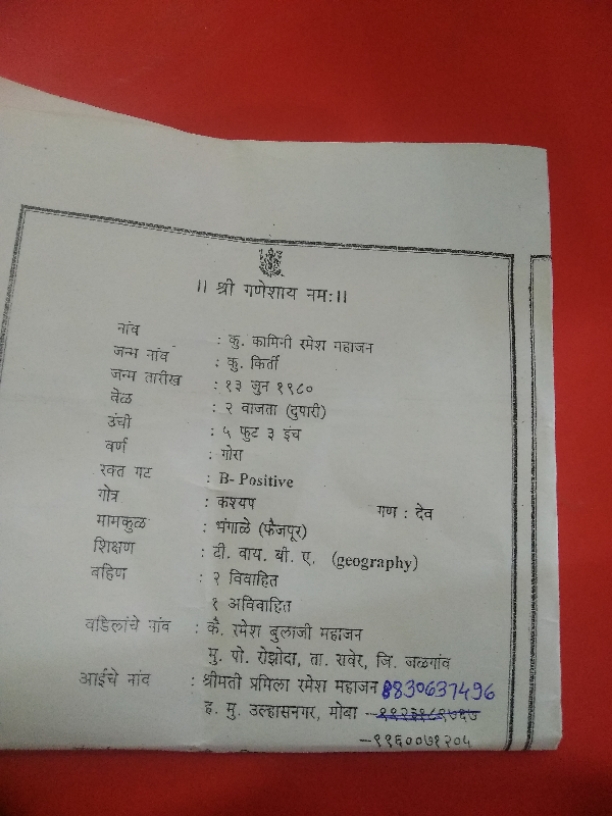 ।। श्री गणेशाय नम:।।
नांव : कु. कामिनी रमेश महाजन
जन्म नांव : कु. किर्ती
जन्म तारीख : १३ जुन १९८०
वेळ : २ वाजता (दुपारी)
उंची : ५ फुट ३ इंच
वर्ण : गोरा
रक्त गट : B- Positive
गोत्र : कश्यप गण : देव
मामकुळ : भंगाळे (फैजपूर)
शिक्षण : टी. वाय. बी. ए. (geography)
वहिण : २ विवाहित
१ अविवाहित
वडिलांचे नांव : कै. रमेश बुलाजी महाजन
मु. पो. रोझोदा, ता. रावेर, जि. जळगांव
आईचे नांव : श्रीमती प्रमिला रमेश महाजन 8830637496
ह. मु. उल्हासनगर, मोबा -
-९९६००७१२०५